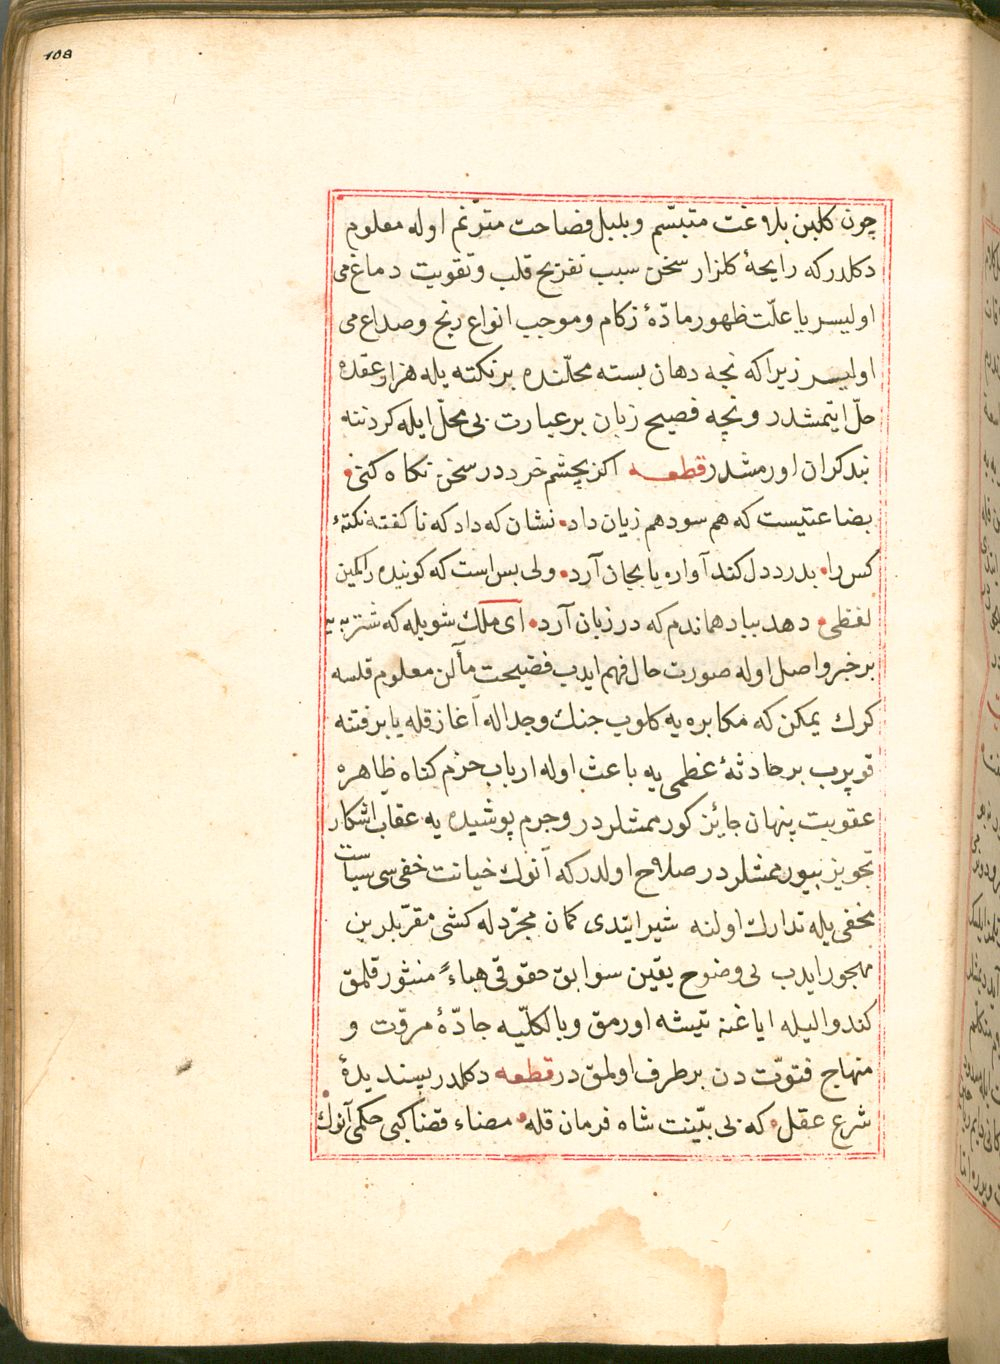 108
چون كلبن بلاغت متبسّم و بلبل فصاحت مترّنم اوله معلوم
دكلدر كه رايحهٔ كلزار سخن سبب تفريح قلب و تقويت دماغ مى
اوليسر يا علّت ظهور مادّهٔ زكام و موجب انواع رنج و صداع مى
اوليسر زيرا كه نجه دهان بسته محلّنده بر نكته يله هزار عقده
حلّ ايتمشدر و نچه فصيح زبان بر عبارت بى محلّ ايله كردننه
بند كران اورمشدر قطعه اكر بچشم خرد در سخن نكاه كنى
بضاعتيست كه هم سود هم زيان داد نشان كه داد كه ناكفته نكتهٔ
كس را بدرد دل كند آواره يا بجان آرد ولى بس است كه كوينده را كمين
لفظى دهد بباد هماندم كه در زبان آرد اى ملك شويله كه شتربه يه
بر خبر واصل اوله صورت حال فهم ايدب فضيحت مآلن معلوم قلسه
كرك يمكن كه مكابره يه كلوب جنك و جداله آغاز قله يا بر فتنه
قوپرب بر حادثهٔ عظمى يه باعث اوله ارباب حزم كناه ظاهره
عقوبت پنهان جائز كورممشلردر و جرم پوشيده يه عقاب اشكار
تجويز بيورممشلردر صلاح اولدر كه آنوك خيانت خفى سى سياست
مخفى يله تدارك اولنه شير ايتدى كمان مجرّد له كشى مقرّبلرين
مهجور ايدب بى وضوح يقين سوابق حقوقى هباءً منثور قلمق
كندو اليله اياغنه تيشه اورمق و بالكلّيه جادّهٔ مروّت و
منهاج فتوّت دن بر طرف اولمق در قطعه دكلدر پسنديدهٔ
شرع عقل كه بى بيّنت شاه فرمان قله مضاء قضا كبى حكمى آنوك